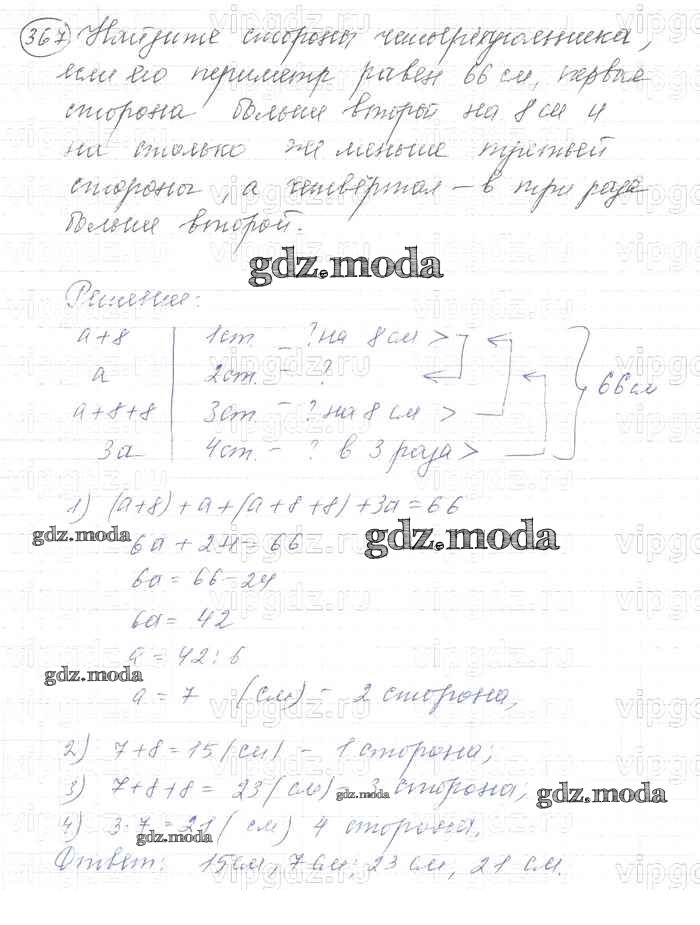 367 Найдите стороны четырёхугольника,
если его периметр равен 66 см, первая
сторона больше второй на 8 см и
на столько же меньше третьей
стороны, а четвёртая – в три раза
больше второй.
gdz.moda
Решение:
a+8 1ст. – ? на 8 см >
a 2ст. – ?
a+8+8 3ст. – ? на 8 см >
3a 4ст. – ? в 3 раза >
66 см
1) (a+8)+a+(a+8+8)+3a=66
gdz.moda gdz.moda
6a+24=66
6a=66-24
6a=42
a=42:6
gdz.moda
a=7 (см) – 2 сторона,
2) 7+8=15 (см) – 1 сторона;
3) 7+8+8=23 (см) – 3 сторона;
gdz.moda gdz.moda
4) 3·7=21 (см) 4 сторона.
gdz.moda
Ответ: 15см, 7см; 23 см, 21 см.